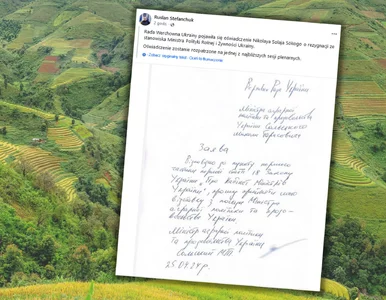 Ruslan Stefanchuk
2 godz. ·
Rada Werchowna Ukrainy pojawiła się oświadczenie Nikołaya Solaja Solsego o rezygnacji ze
stanowiska Ministra Polityki Rolnej i Żywności Ukrainy.
Oświadczenie zostanie rozpatrzone na jednej z najbliższych sesji plenarnych.
Zobacz oryginalny tekst · Oceń to tłumaczenie
Верховна Рада України
Міністра аграрної
політики та продовольства
України Сольського
Миколи Тарасовича
Заява
Відповідно до пункту першого
частини першої статті 18 Закону
України „Про Кабінет Міністрів
України", прошу прийняти мою
відставку з посади Міністра
аграрної політики та продо-
вольства України
Міністр аграрної політики
та продовольства України
Сольський М.Т.
25.04.24 р.